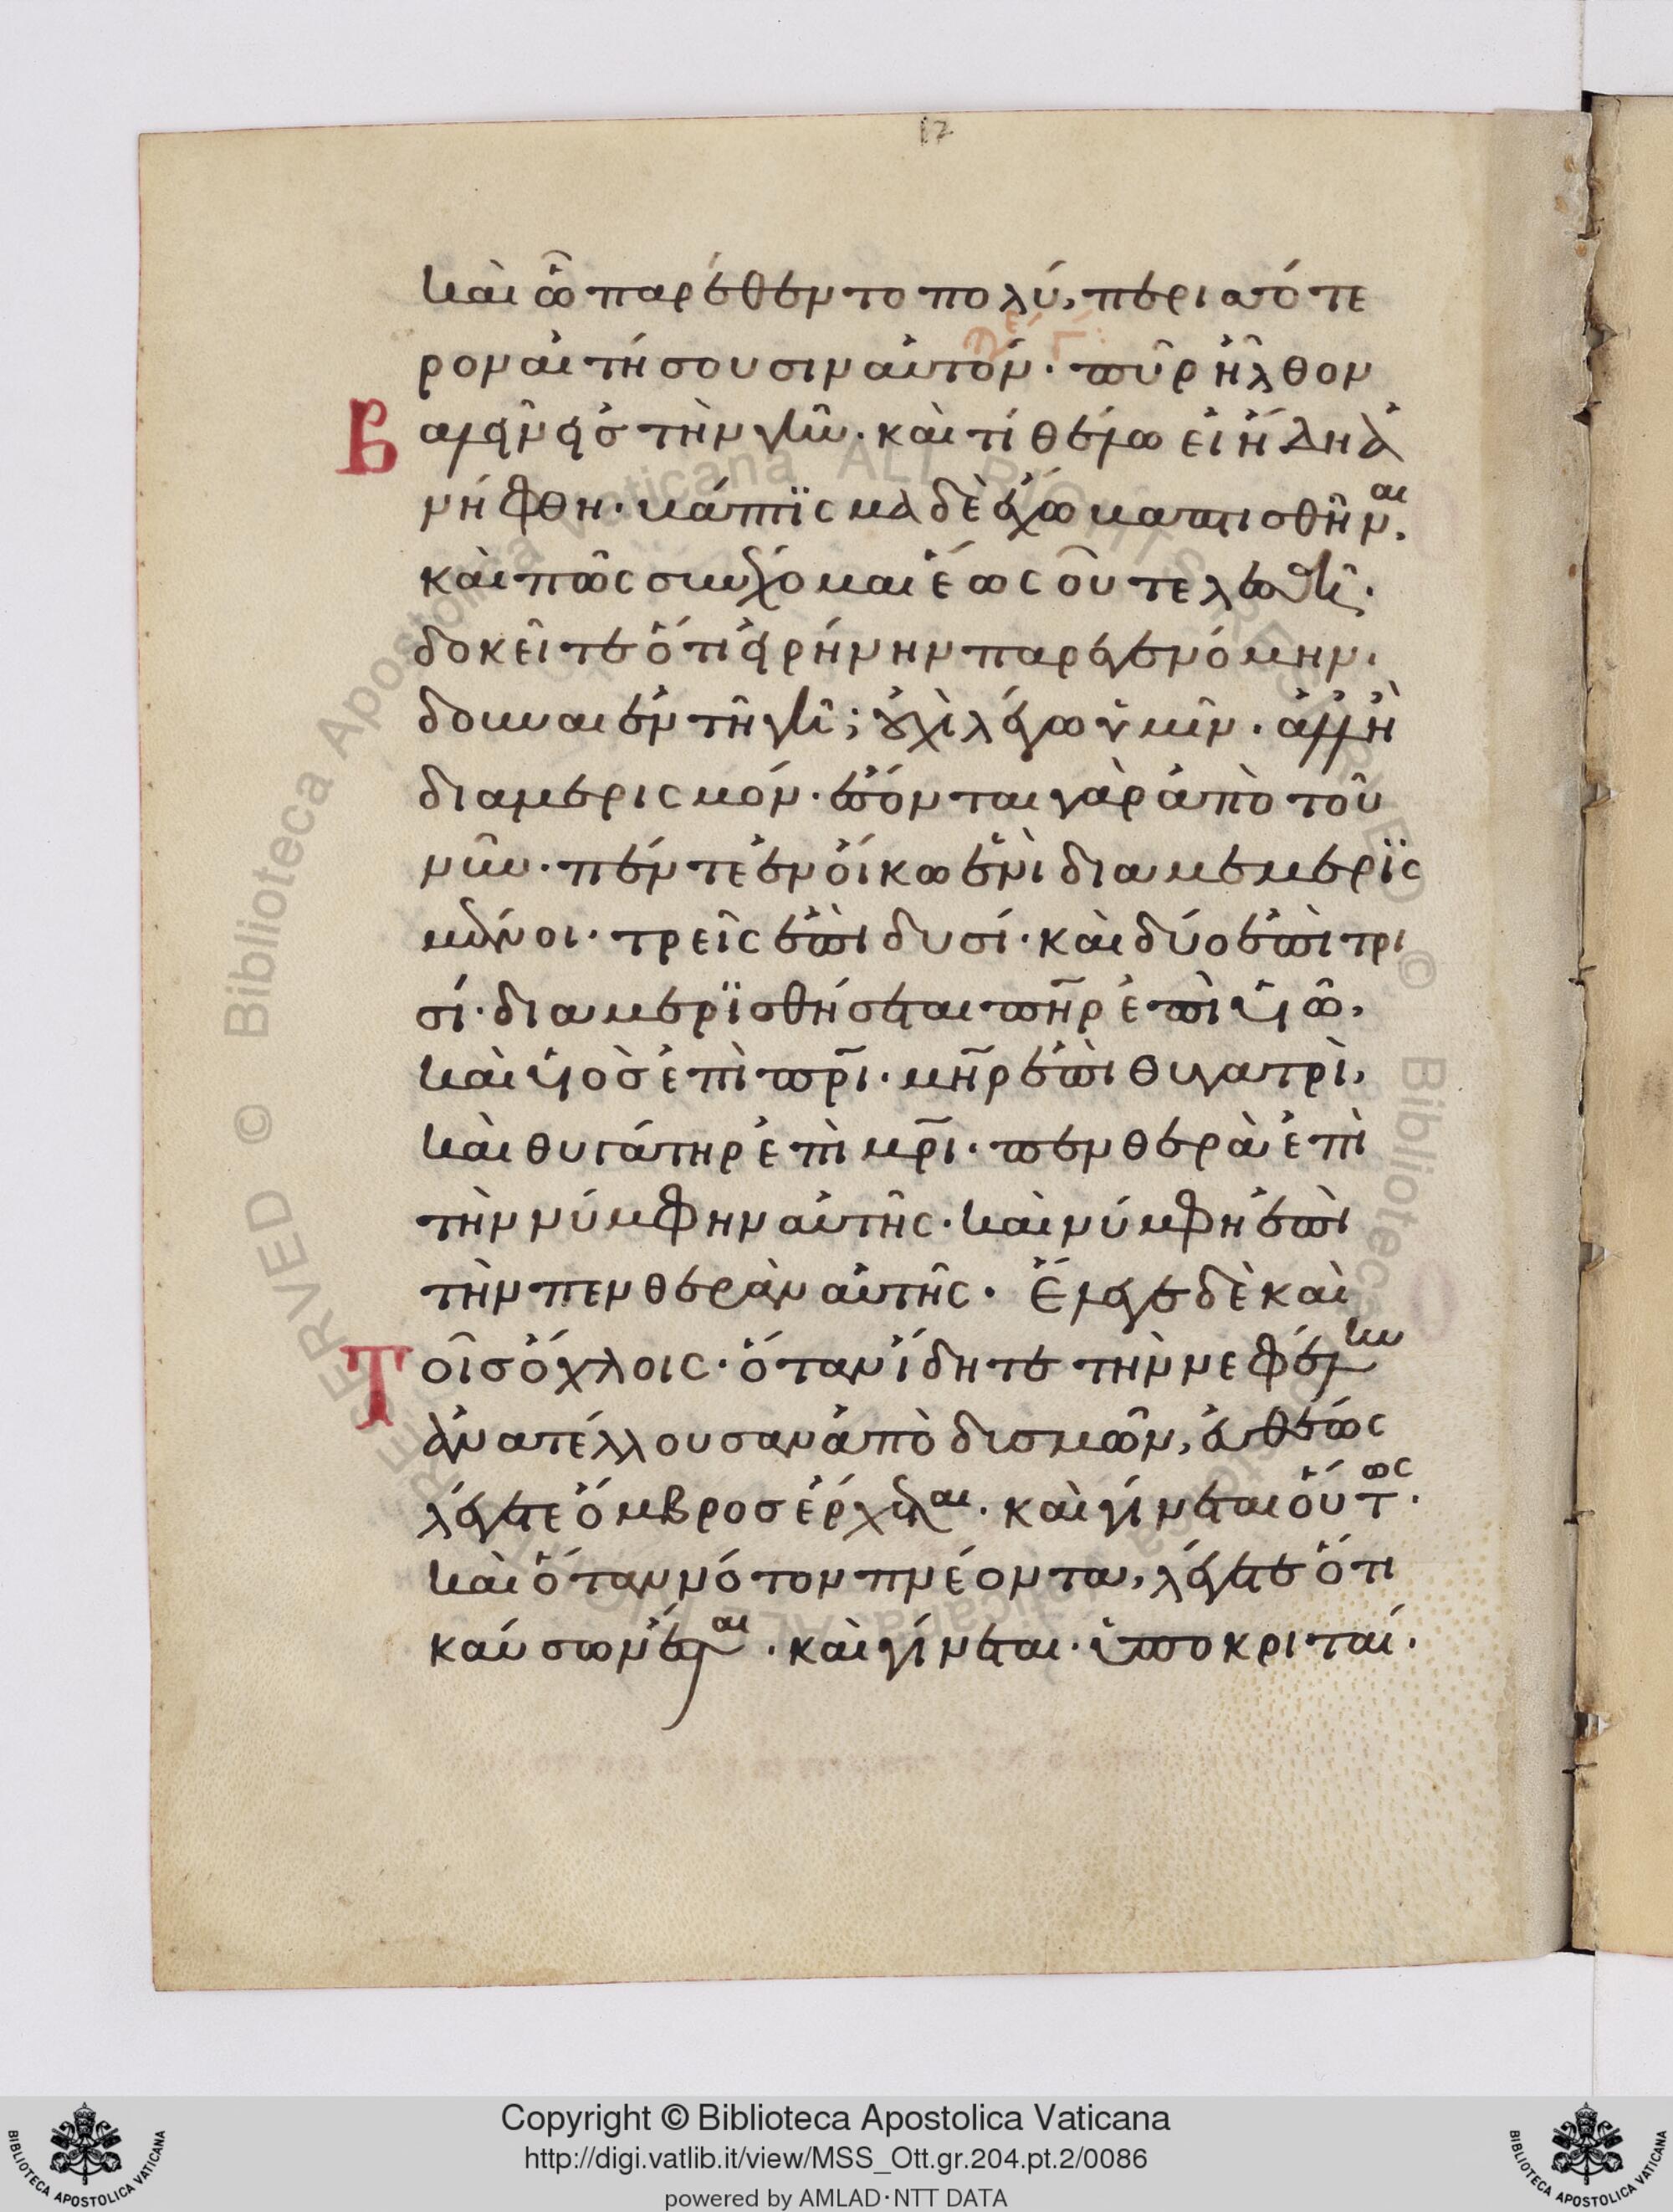 17
καὶ ὧ παρέθεντο πολύ, περισσότε
ρον αἰτήσουσιν αὐτόν. πῦρ ἦλθον
Βαλεῖν εἰσ τὴν γῆν. καὶ τί θέλω εἰ ἤδη ἀ
νήφθη. βάπτϊσμα δὲ ἔχω βαπτισθῆναι.
καὶ πῶς συνέχομαι ἕως οὗ τελεσθῆ.
δοκεῖτε ὅτι εἰρήνην παρεγενόμην.
δοῦναι ἐν τῆ γῆ; οὐχὶ λέγω ὑμῖν. ἀλλ' ἢ
διαμερισμόν. ἔσονται γὰρ ἀπὸ τοῦ
νῦν. πέντε ἐν οἴκω ἑνὶ διαμεμερϊς
μένοι. τρεῖς ἐπὶ δυσί. καὶ δύο ἐπὶ τρι
σί. διαμερϊσθήσεται πηρ ἐπὶ υἱῶ,
καὶ υἱὸσ ἐπὶ πρι. μηρ ἐπὶ θυγατρὶ,
καὶ θυγάτηρ ἐπὶ μρι. πενθερὰ ἐπὶ
τὴν νύμφην αὐτῆς. καὶ νύμφη ἐπὶ
τὴν πενθερὰν αὐτῆς. Ἔλεγε δὲ καὶ
Τοῖσ ὄχλοις. ὅταν ἴδητε τὴν νεφέλην
ἀνατέλλουσαν ἀπὸ δισμῶν, εὐθέως
λέγετε ὄμβροσ ἔρχεται. καὶ γίνεται οὕτως.
καὶ ὅταν νότον πνέοντα, λέγετε ὅτι
καύσων ἔσται. καὶ γίνεται. ὑποκριταί.
Copyright © Biblioteca Apostolica Vaticana
http://digi.vatlib.it/view/MSS_Ott.gr.204.pt.2/0086
powered by AMLAD·NTT DATA
BIBLIOTECA APOSTOLICA VATICANA
BIBLIOTECA APOSTOLICA VATICANA